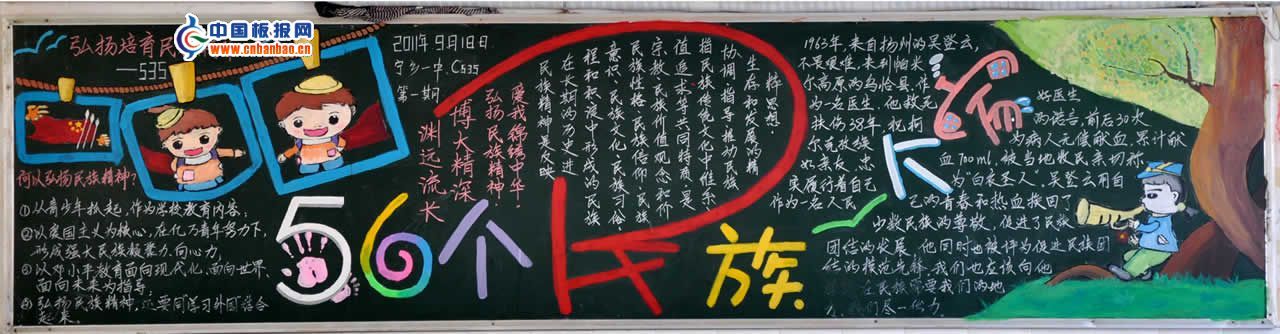 中国板报网
www.cnbanbao.cn
弘扬培育民
——535
2011年9月18日
宁乡一中 C535
第一期
何以弘扬民族精神?
①从青少年抓起,作为学校教育内容;
②以爱国主义为核心,在亿万青年努力下,
形成强大民族凝聚力、向心力;
③以邓小平教育面向现代化、面向世界、
面向未来为指导;
④弘扬民族精神,还要同学习外国结合
起来。
爱我绵绵中华
弘扬民族精神
博大精深
渊远流长
56个民族
粹思想。
生存和发展的精
协调、指导推动民族
指民族传统文化中维系、
值追求等共同特质,是
宗教、民族价值观念和价
民族性格、民族信仰、民族
意识、民族文化、民族习俗、
程和积淀中形成的民族
在长期的历史进
民族精神是反映
1963年,来自扬州的吴登云,
不畏艰难,来到帕米
尔高原的乌恰县,作
为一名医生,他救死
扶伤38年,视柯
尔克孜族
如亲长,忠
实履行着自己
作为一名人民
好医生
的诺言,前后30次
为病人无偿献血,累计献
血700ml,被当地牧民亲切称
为“白衣圣人”。吴登云用自
己的青春和热血换回了
少数民族的尊敬,促进了民族
团结的发展,他同时也被评为促进民族团
结的模范先锋,我们也应该向他
在民族需要我们的地
方,我们尽一份力。